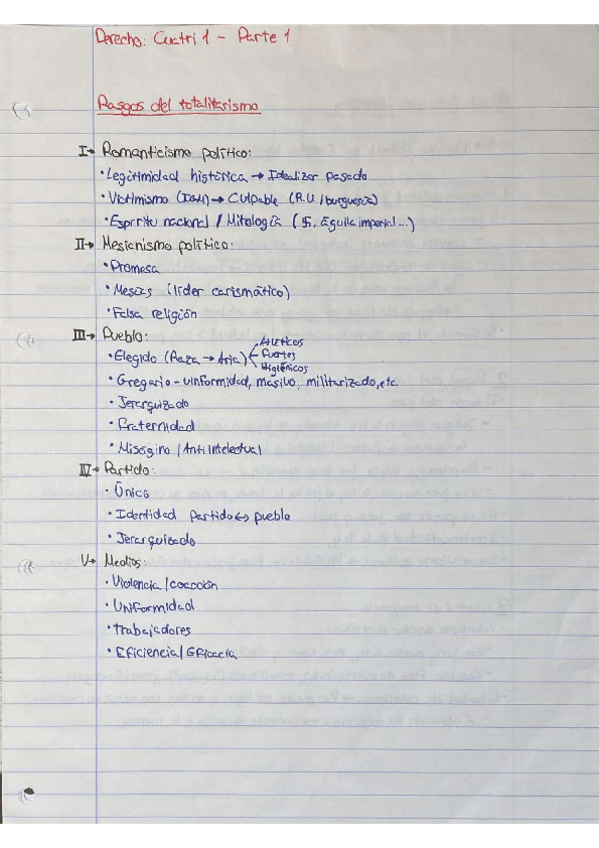 Derecho: Cuatri 1 - Parte 1
Rasgos del totalitarismo
I→ Romanticismo político:
• Legitimidad histórica → Idealizar pasado
• Victimismo (IGM) → Culpable (R.U / burguesía)
• Espíritu nacional / Mitología (卐, Águila imperial...)
II→ Mesianismo político:
• Promesa
• Mesías (líder carismático)
• Falsa religión
III→ Pueblo:
• Elegido (Raza → Aria) Atléticos
Fuertes
Higiénicos
• Gregario - uniformidad, masivo, militarizado, etc.
• Jerarquizado
• Fraternidad
• Misógino / Antiintelectual
IV→ Partido:
• Único
• Identidad Partido ↔ pueblo
• Jerarquizado
V→ Medios:
• Violencia / coacción
• Uniformidad
• Trabajadores
• Eficiencia / Eficacia